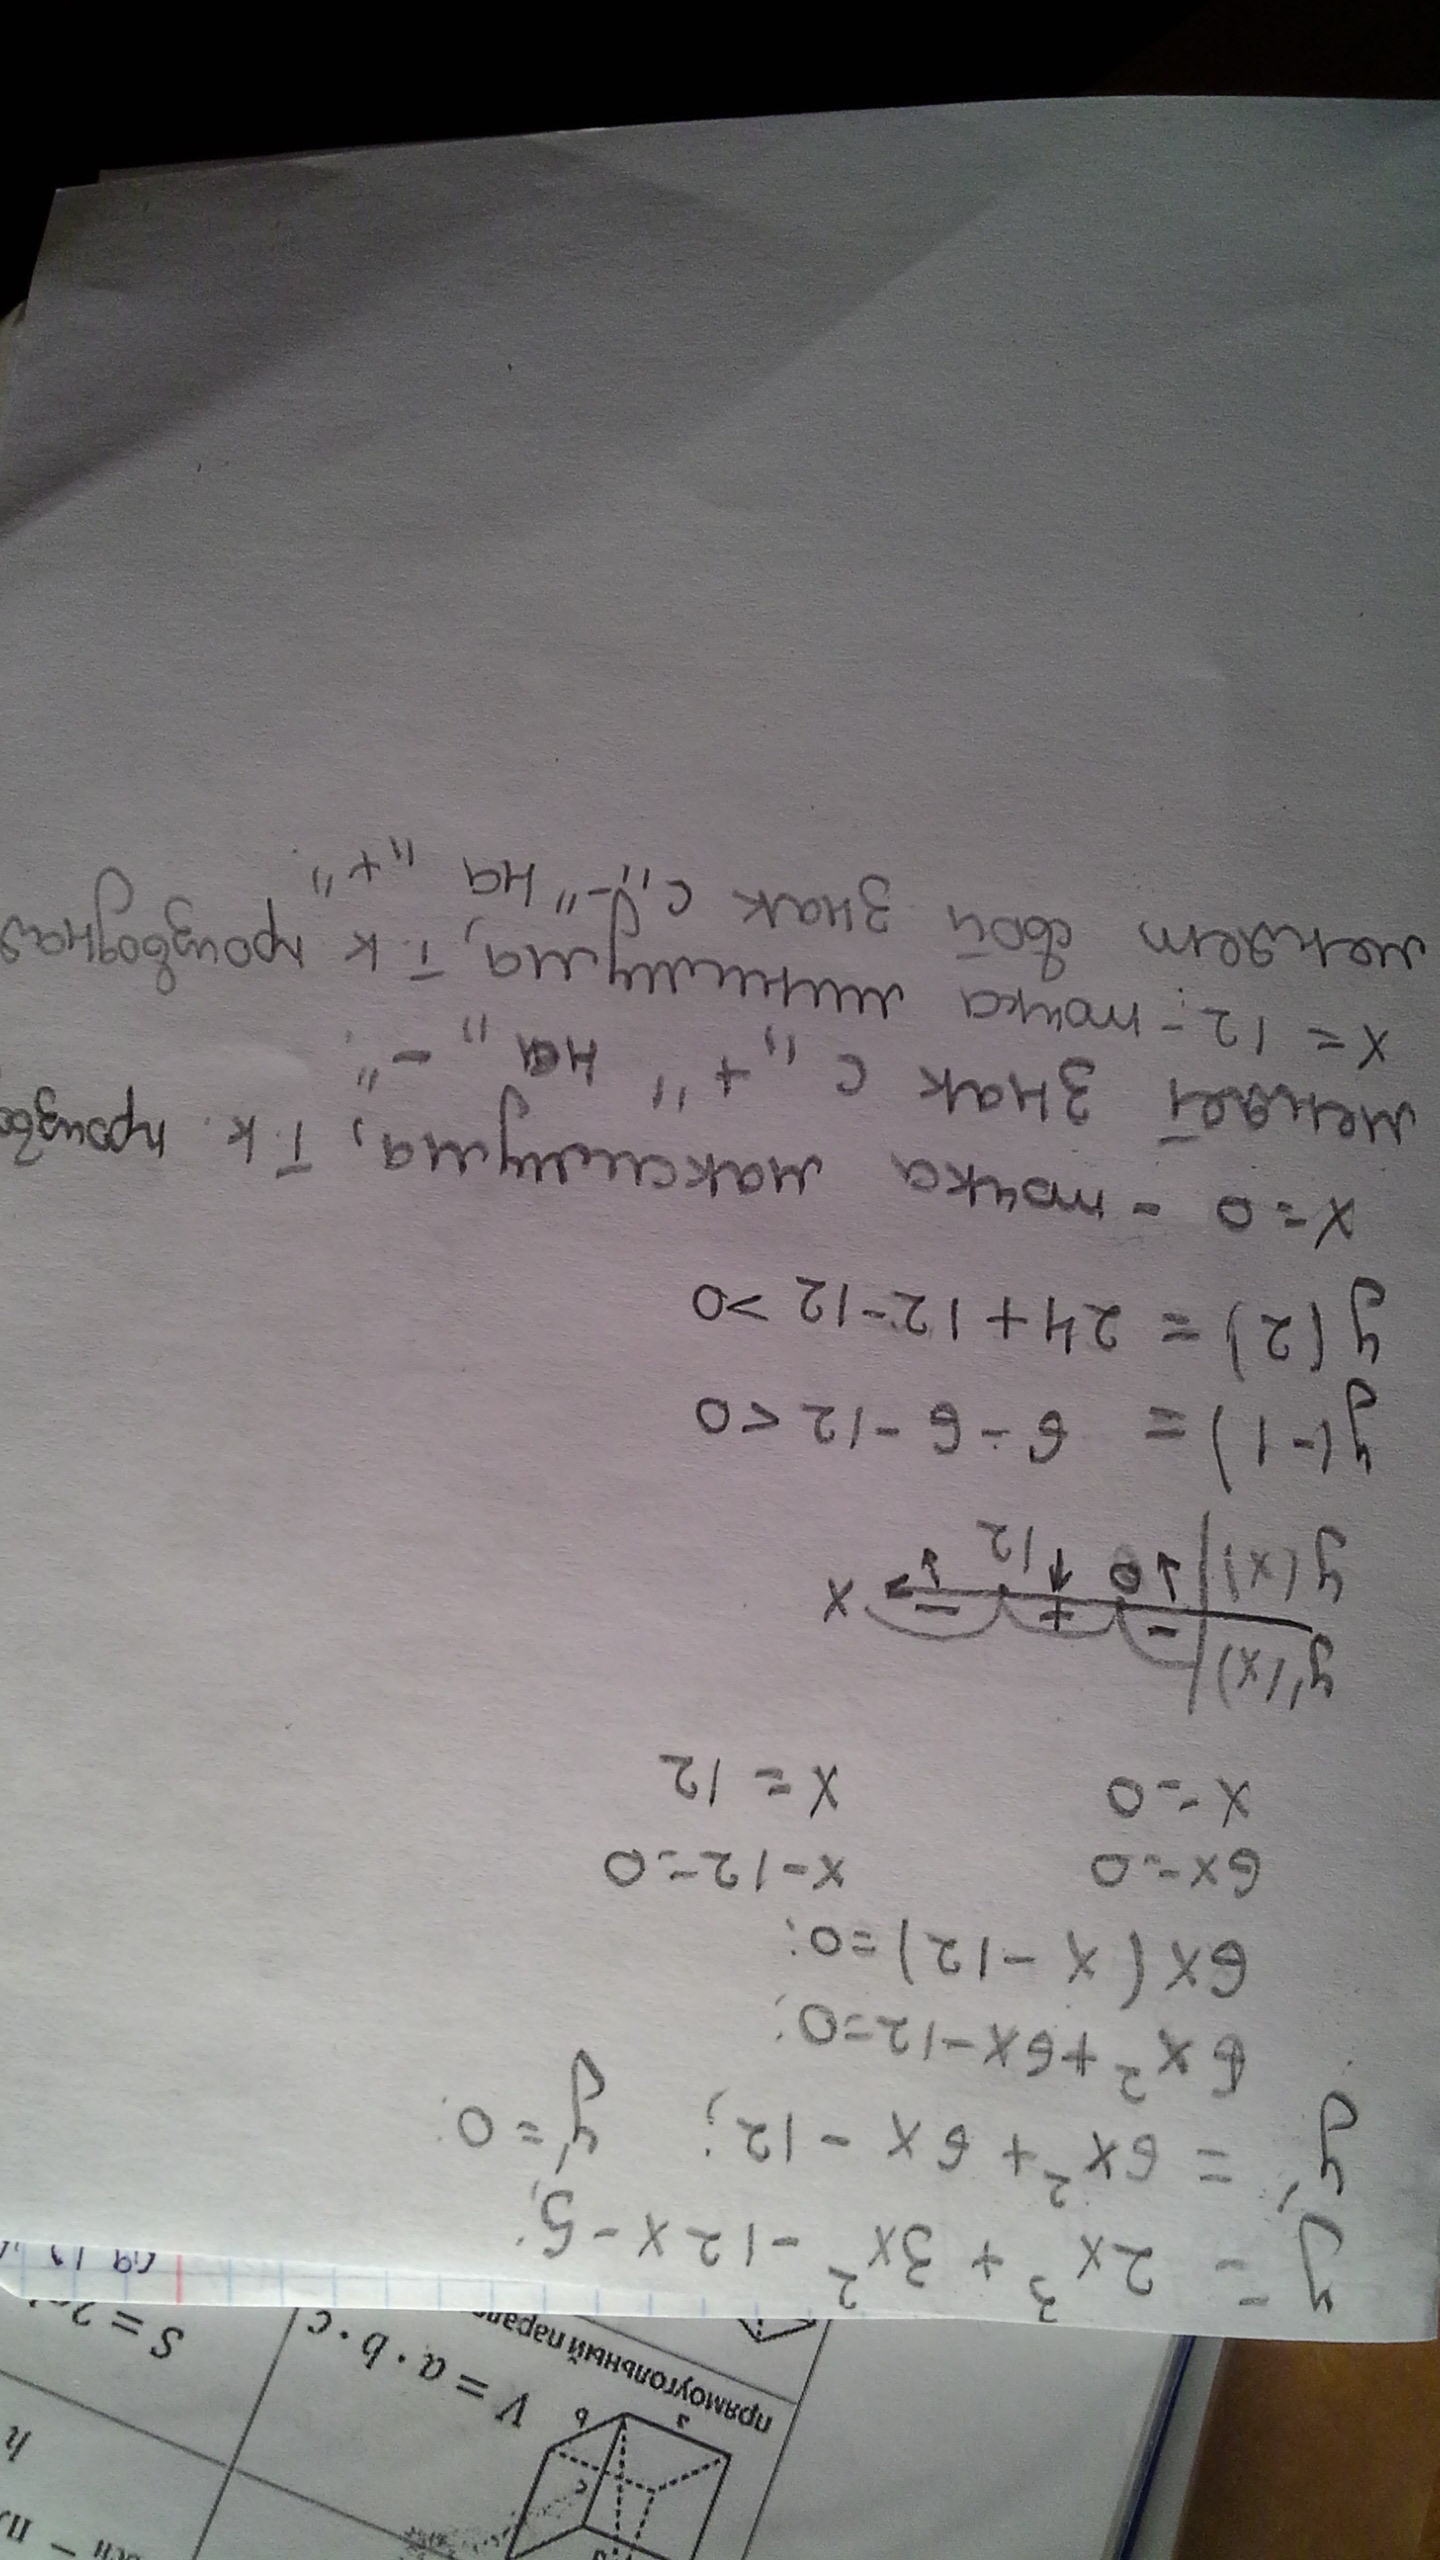 y = 2x³ + 3x² - 12x - 5;
y' = 6x² + 6x - 12; y' = 0:
6x² + 6x - 12 = 0;
6x(x - 12) = 0;
6x = 0 x - 12 = 0
x = 0 x = 12
y'(x) - + - x
y(x) ↓ 0 ↑ 12 ↓
y(-1) = 6 - 6 - 12 < 0
y(2) = 24 + 12 - 12 > 0
x = 0 - точка максимума, т.к. произво
меняет знак с „+" на „-".
x = 12 - точка минимума, т.к производная
меняет свой знак с „-" на „+".
прямоугольный парал
V = a · b · c
S = 2
a
b
c
h